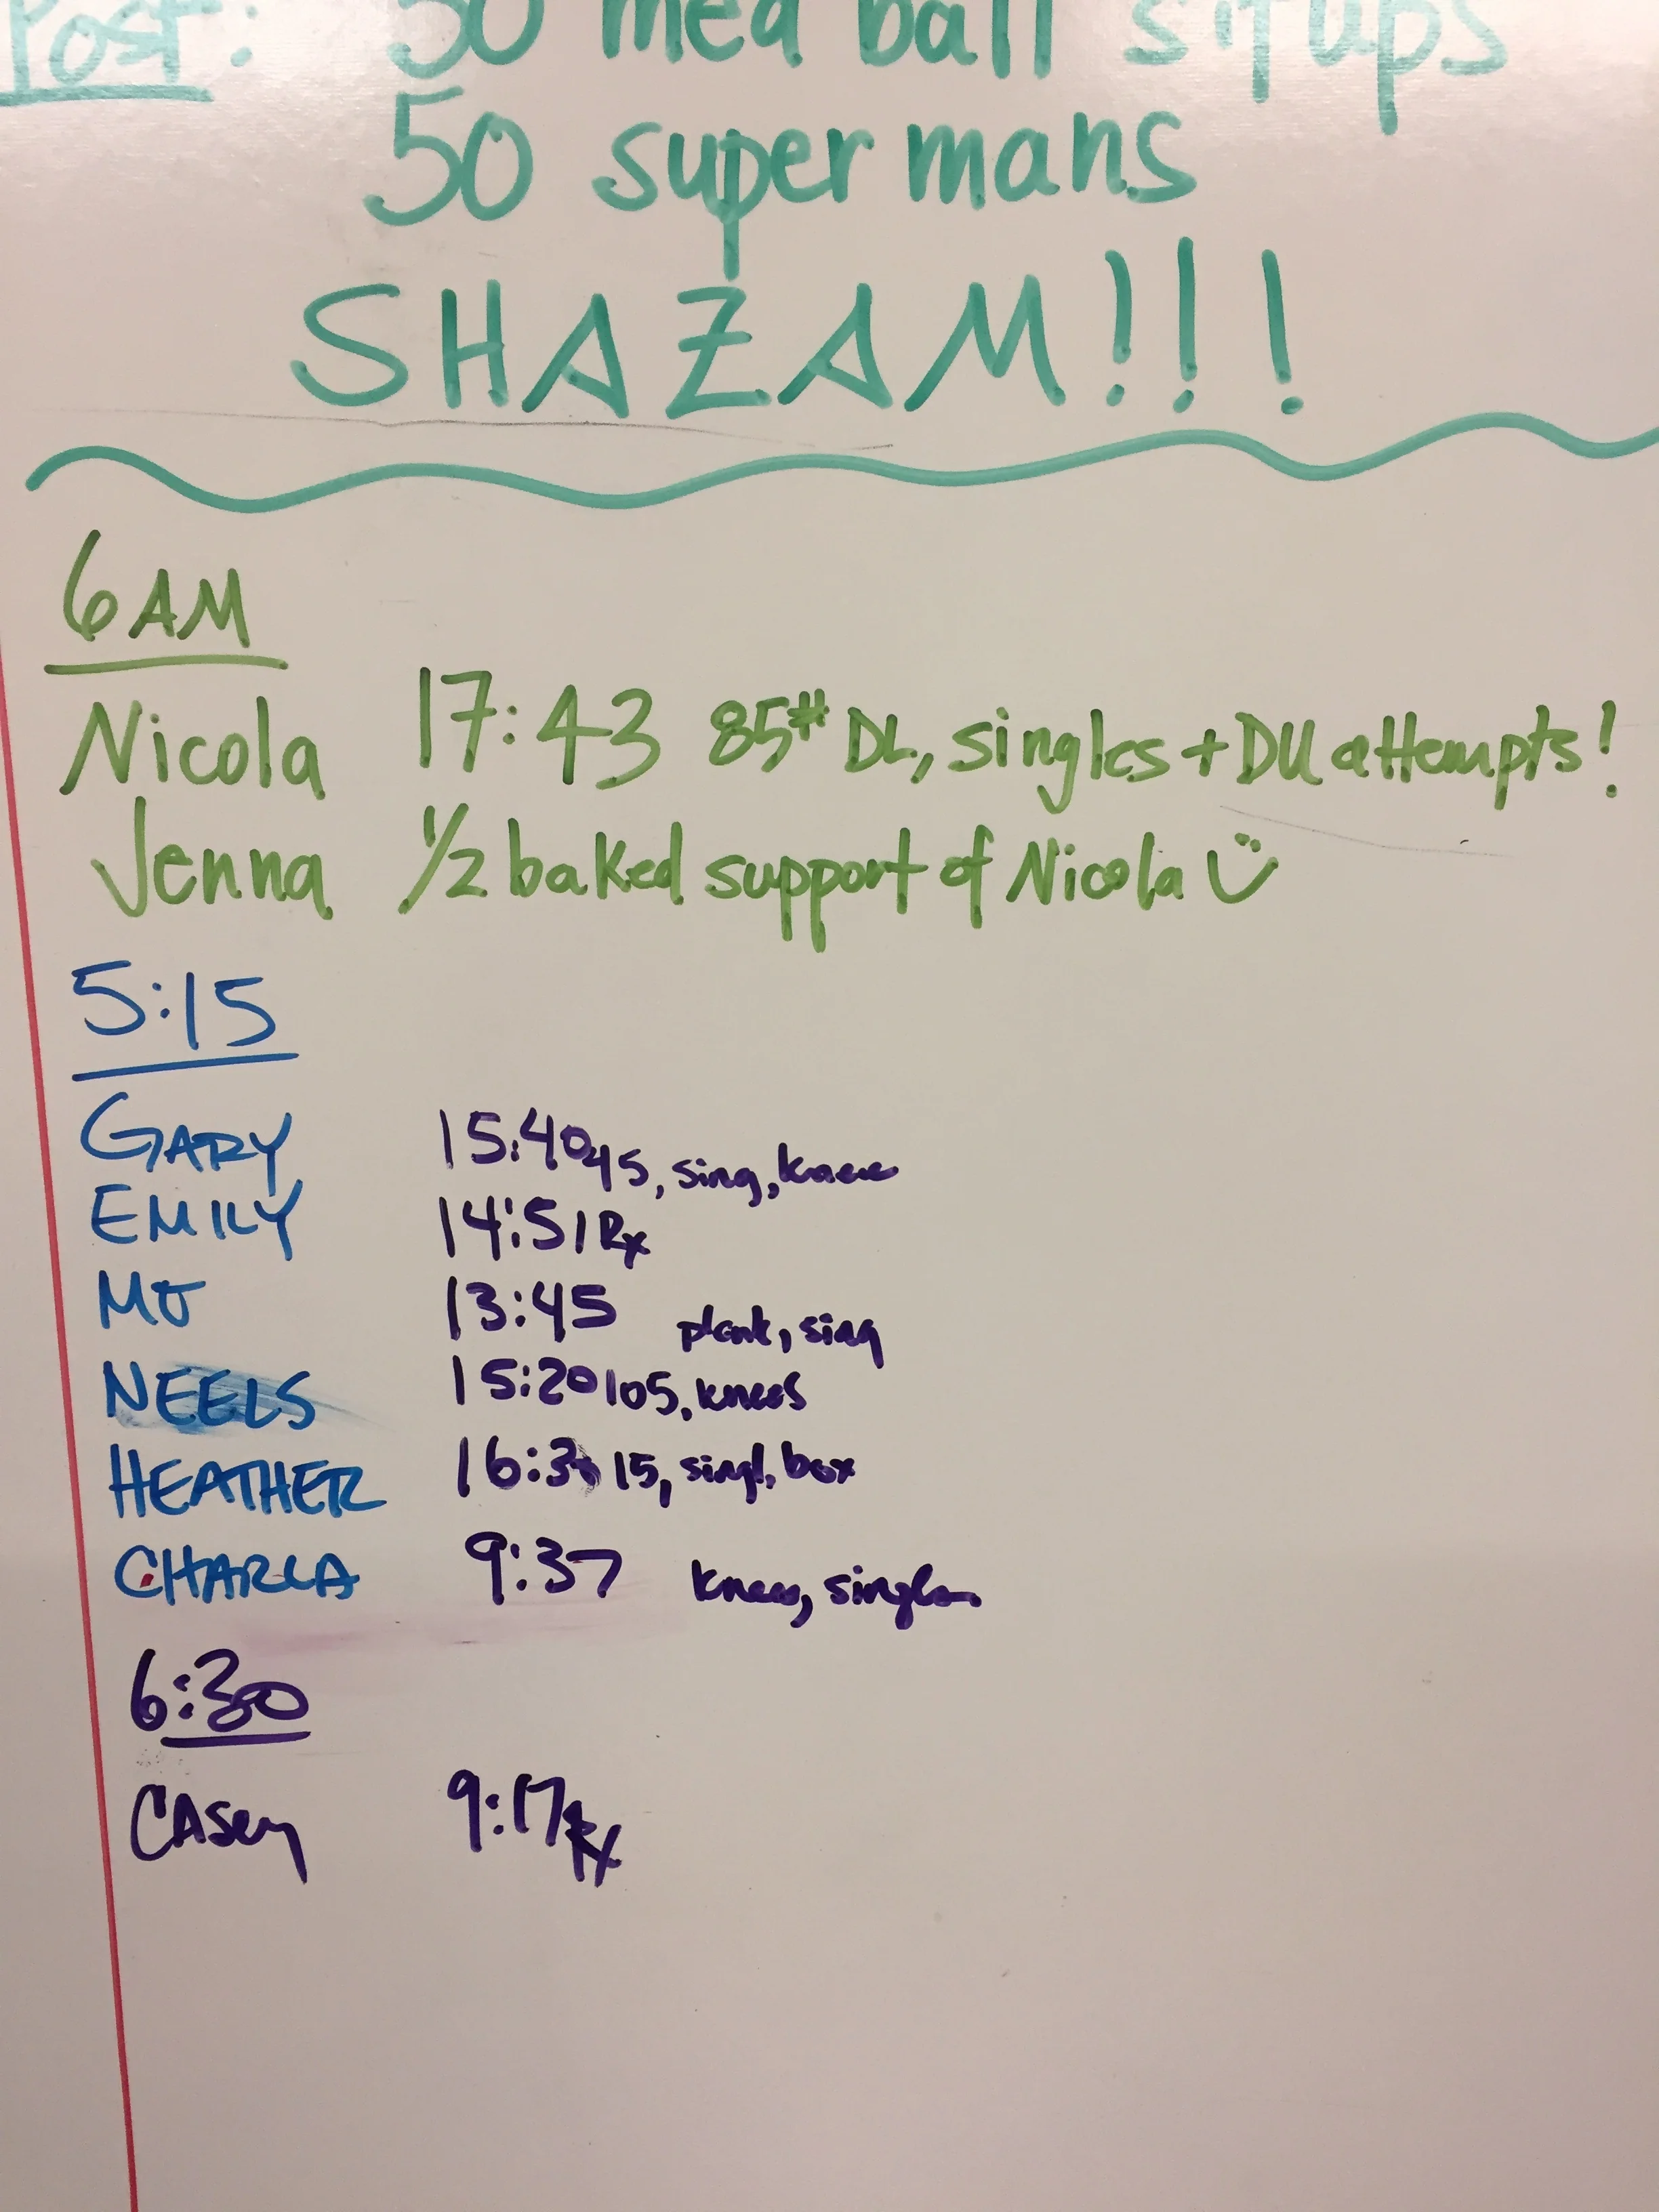 Post: 50 med ball situps
50 supermans
SHAZAM!!!
6AM
Nicola 17:43 85# DL, singles + DU attempts!
Jenna 1/2 baked support of Nicola
5:15
GARY 15:40 45, sing, knee
EMILY 14:51 Rx
MJ 13:45 plank, sing
NEELS 15:20 105, knees
HEATHER 15, singl, box
CHARLA 9:37 knees, singles
6:30
CASey 9:17 Rx